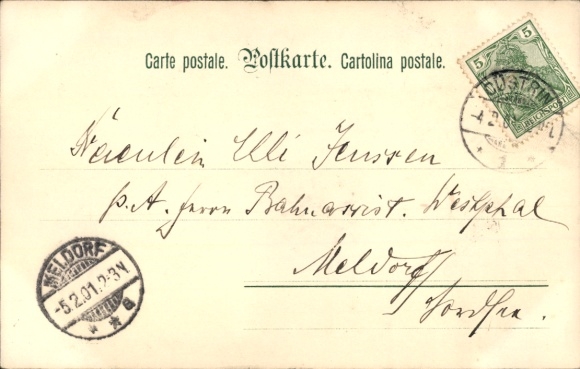 Carte postale. Postkarte. Cartolina postale.
5 5
REICHSPOST
CÜSTRIN
Fräulein Elli Jenssen
p. A. Herrn Bahnassist. Westphal
Meldorf
Nordsee.
MELDORF
-5.2.01.2-3N
* * a